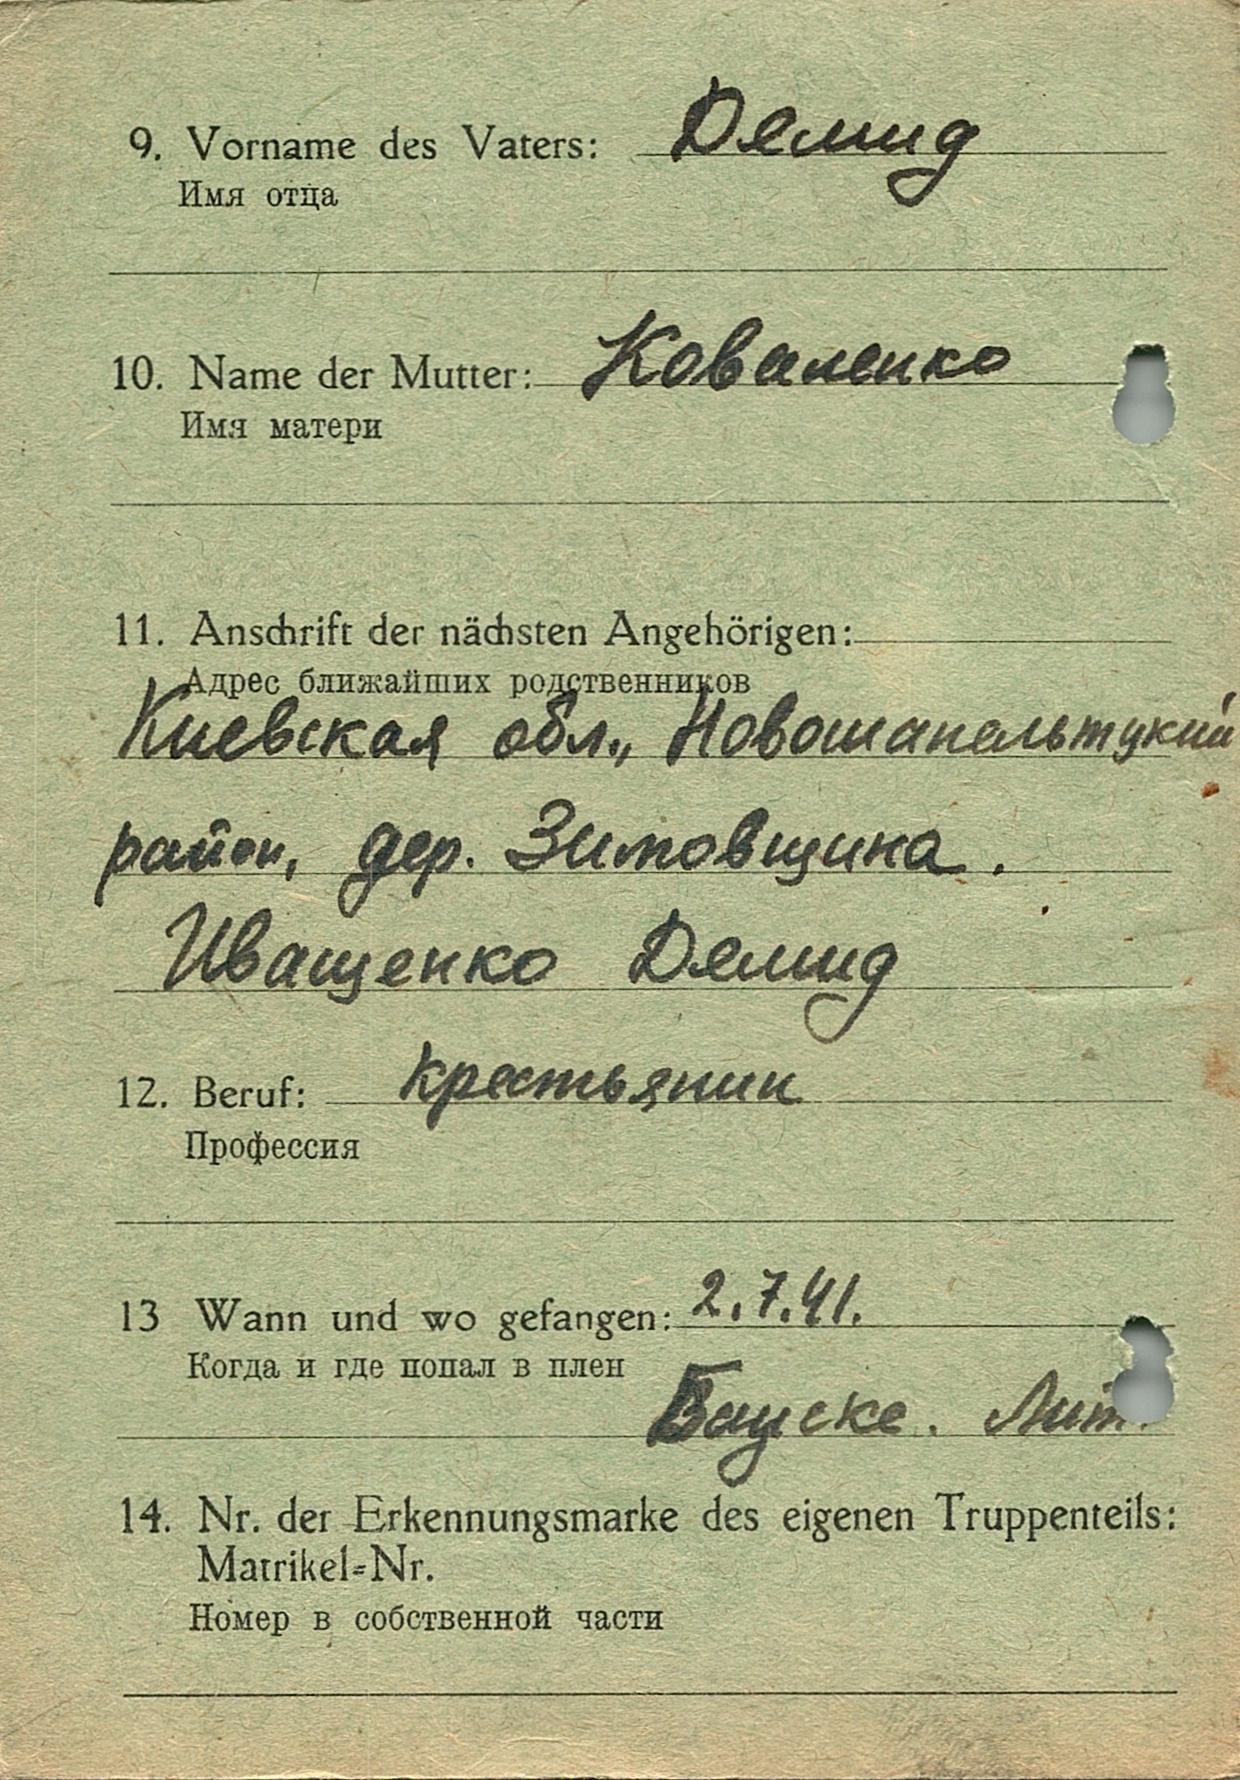 9. Vorname des Vaters: Демид
Имя отца
10. Name der Mutter: Коваленко
Имя матери
11. Anschrift der nächsten Angehörigen:
Адрес ближайших родственников
Киевская обл.,
район, дер. Зимовщина.
Иващенко Демид
12. Beruf: крестьянин
Профессия
13 Wann und wo gefangen: 2.7.41.
Когда и где попал в плен
Бауске. Лит.
14. Nr. der Erkennungsmarke des eigenen Truppenteils:
Matrikel=Nr.
Номер в собственной части